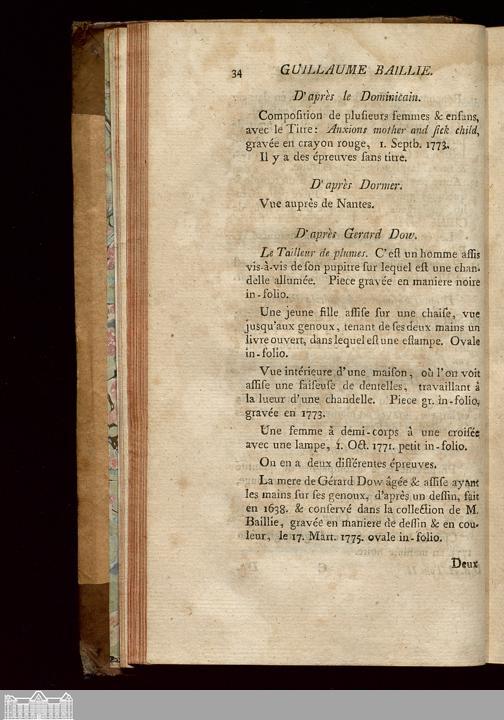 34 GUILLAUME BAILLIE.
D'après le Dominicain.
Compoſition de pluſieurs femmes & enfans,
avec le Titre: Anxions mother and ſick child,
gravée en crayon rouge, 1. Septb. 1773.
Il y a des épreuves ſans titre.
D'après Dormer.
Vue auprès de Nantes.
D'après Gerard Dow.
Le Tailleur de plumes. C'eſt un homme aſſis
vis-à-vis de ſon pupitre ſur lequel eſt une chan-
delle allumée. Piece gravée en maniere noire
in-folio.
Une jeune fille aſſiſe ſur une chaiſe, vue
jusqu'aux genoux, tenant de ſes deux mains un
livre ouvert, dans lequel eſt une eſtampe. Ovale
in-folio.
Vue intérieure d'une maiſon, où l'on voit
aſſiſe une faiſeuſe de dentelles, travaillant à
la lueur d'une chandelle. Piece gr. in-folio,
gravée en 1773.
Une femme à demi-corps à une croiſée
avec une lampe, 1. Oct. 1771. petit in-folio.
On en a deux différentes épreuves.
La mere de Gérard Dow âgée & aſſiſe ayant
les mains ſur ſes genoux, d'après un deſſin, fait
en 1638. & conſervé dans la collection de M.
Baillie, gravée en maniere de deſſin & en cou-
leur, le 17. Mart. 1775. ovale in-folio.
Deux